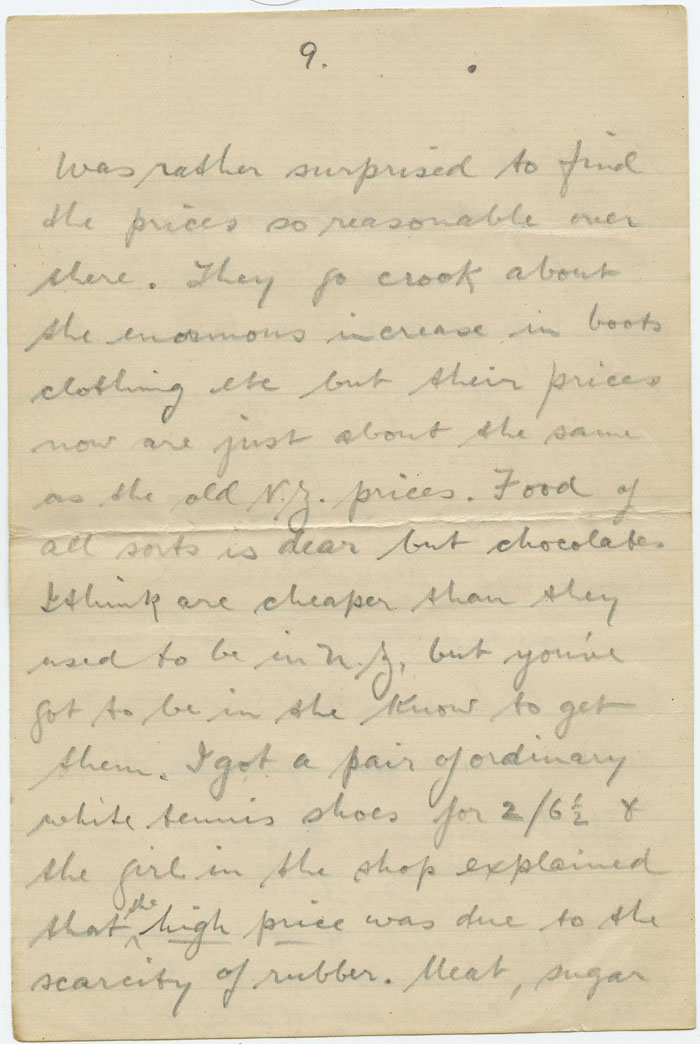 9.
Was rather surprised to find
the prices so reasonable over
there. They go crook about
the enormous increase in boots
clothing etc but their prices
now are just about the same
as the old N.Z. prices. Food of
all sorts is dear but chocolates
I think are cheaper than they
used to be in N.Z, but you've
got to be in the know to get
them. I got a pair of ordinary
white tennis shoes for 2/6½ &
the girl in the shop explained
that the high price was due to the
scarcity of rubber. Meat, sugar